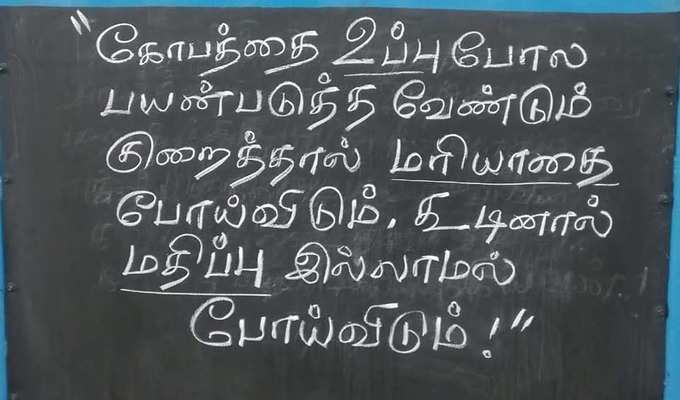 "கோபத்தை உப்பு போல
பயன்படுத்த வேண்டும்
குறைத்தால் மரியாதை
போய்விடும், கூடினால்
மதிப்பு இல்லாமல்
போய்விடும்!"